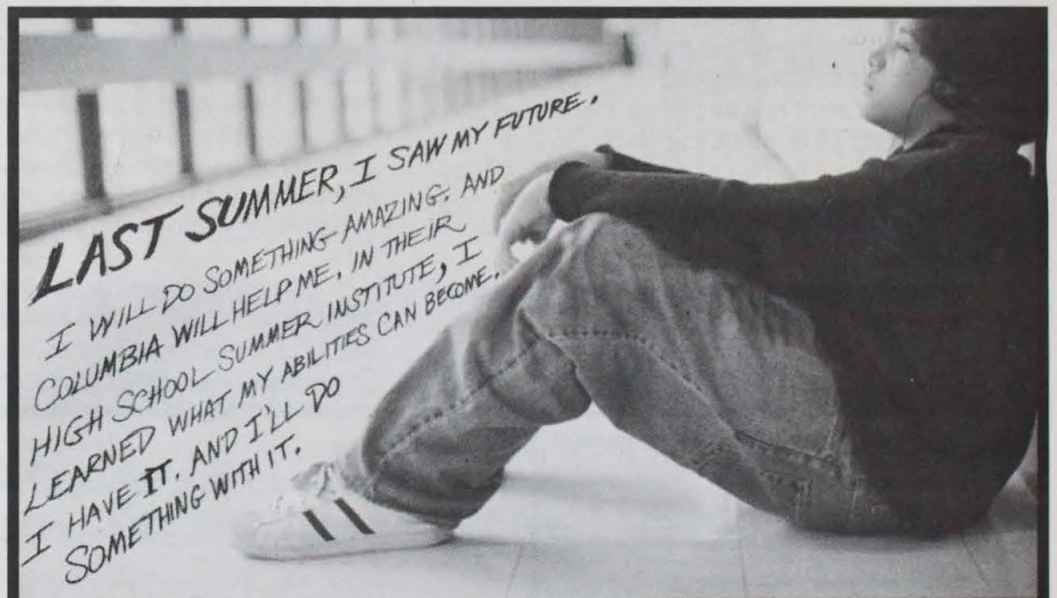 LAST SUMMER, I SAW MY FUTURE.
I WILL DO SOMETHING AMAZING. AND
COLUMBIA WILL HELP ME. IN THEIR
HIGH SCHOOL SUMMER INSTITUTE, I
LEARNED WHAT MY ABILITIES CAN BECOME.
I HAVE IT. AND I'LL DO
SOMETHING WITH IT.